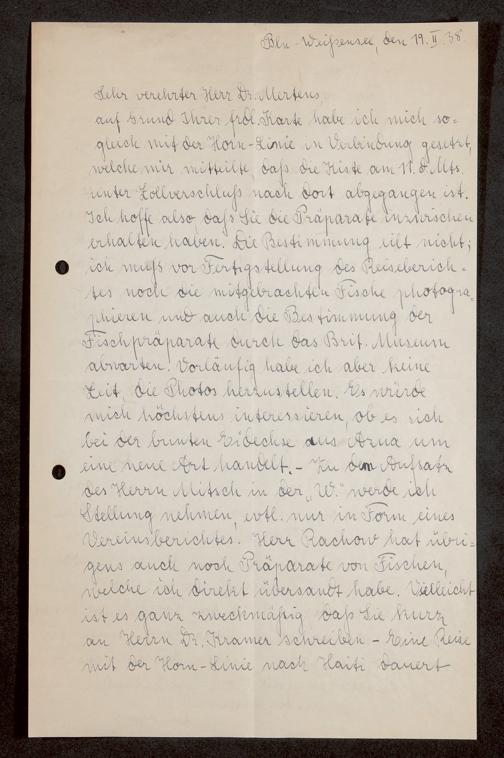 Bln-Weißensee, den 19. II. 38.
Sehr verehrter Herr Dr. Mertens,
auf Grund Ihrer frdl. Karte habe ich mich so=
gleich mit der Horn-Linie in Verbindung gesetzt,
welche mir mitteilte, daß die Kiste am 11. d. Mts.
unter Zollverschluß nach dort abgegangen ist.
Ich hoffe also, daß Sie die Präparate inzwischen
erhalten haben. Die Bestimmung eilt nicht;
ich muß vor Fertigstellung des Reiseberich=
tes noch die mitgebrachten Fische photogra=
phieren und auch die Bestimmung der
Fischpräparate durch das Brit. Museum
abwarten. Vorläufig habe ich aber keine
Zeit, die Photos herzustellen. Es würde
mich höchstens interessieren, ob es sich
bei der bunten Eidechse aus Azua um
eine neue Art handelt. - Zu dem Aufsatz
des Herrn Mitsch in der „W." werde ich
Stellung nehmen, evtl. nur in Form eines
Vereinsberichtes. Herr Rachow hat übri=
gens auch noch Präparate von Fischen,
welche ich direkt übersandt habe. Vielleicht
ist es ganz zweckmäßig, daß Sie kurz
an Herrn Dr. Kramer schreiben - Eine Reise
mit der Horn-Linie nach Haiti dauert